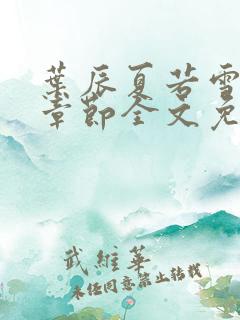 葉辰夏若雪
章節全文免
武維華
未经同意禁止转载